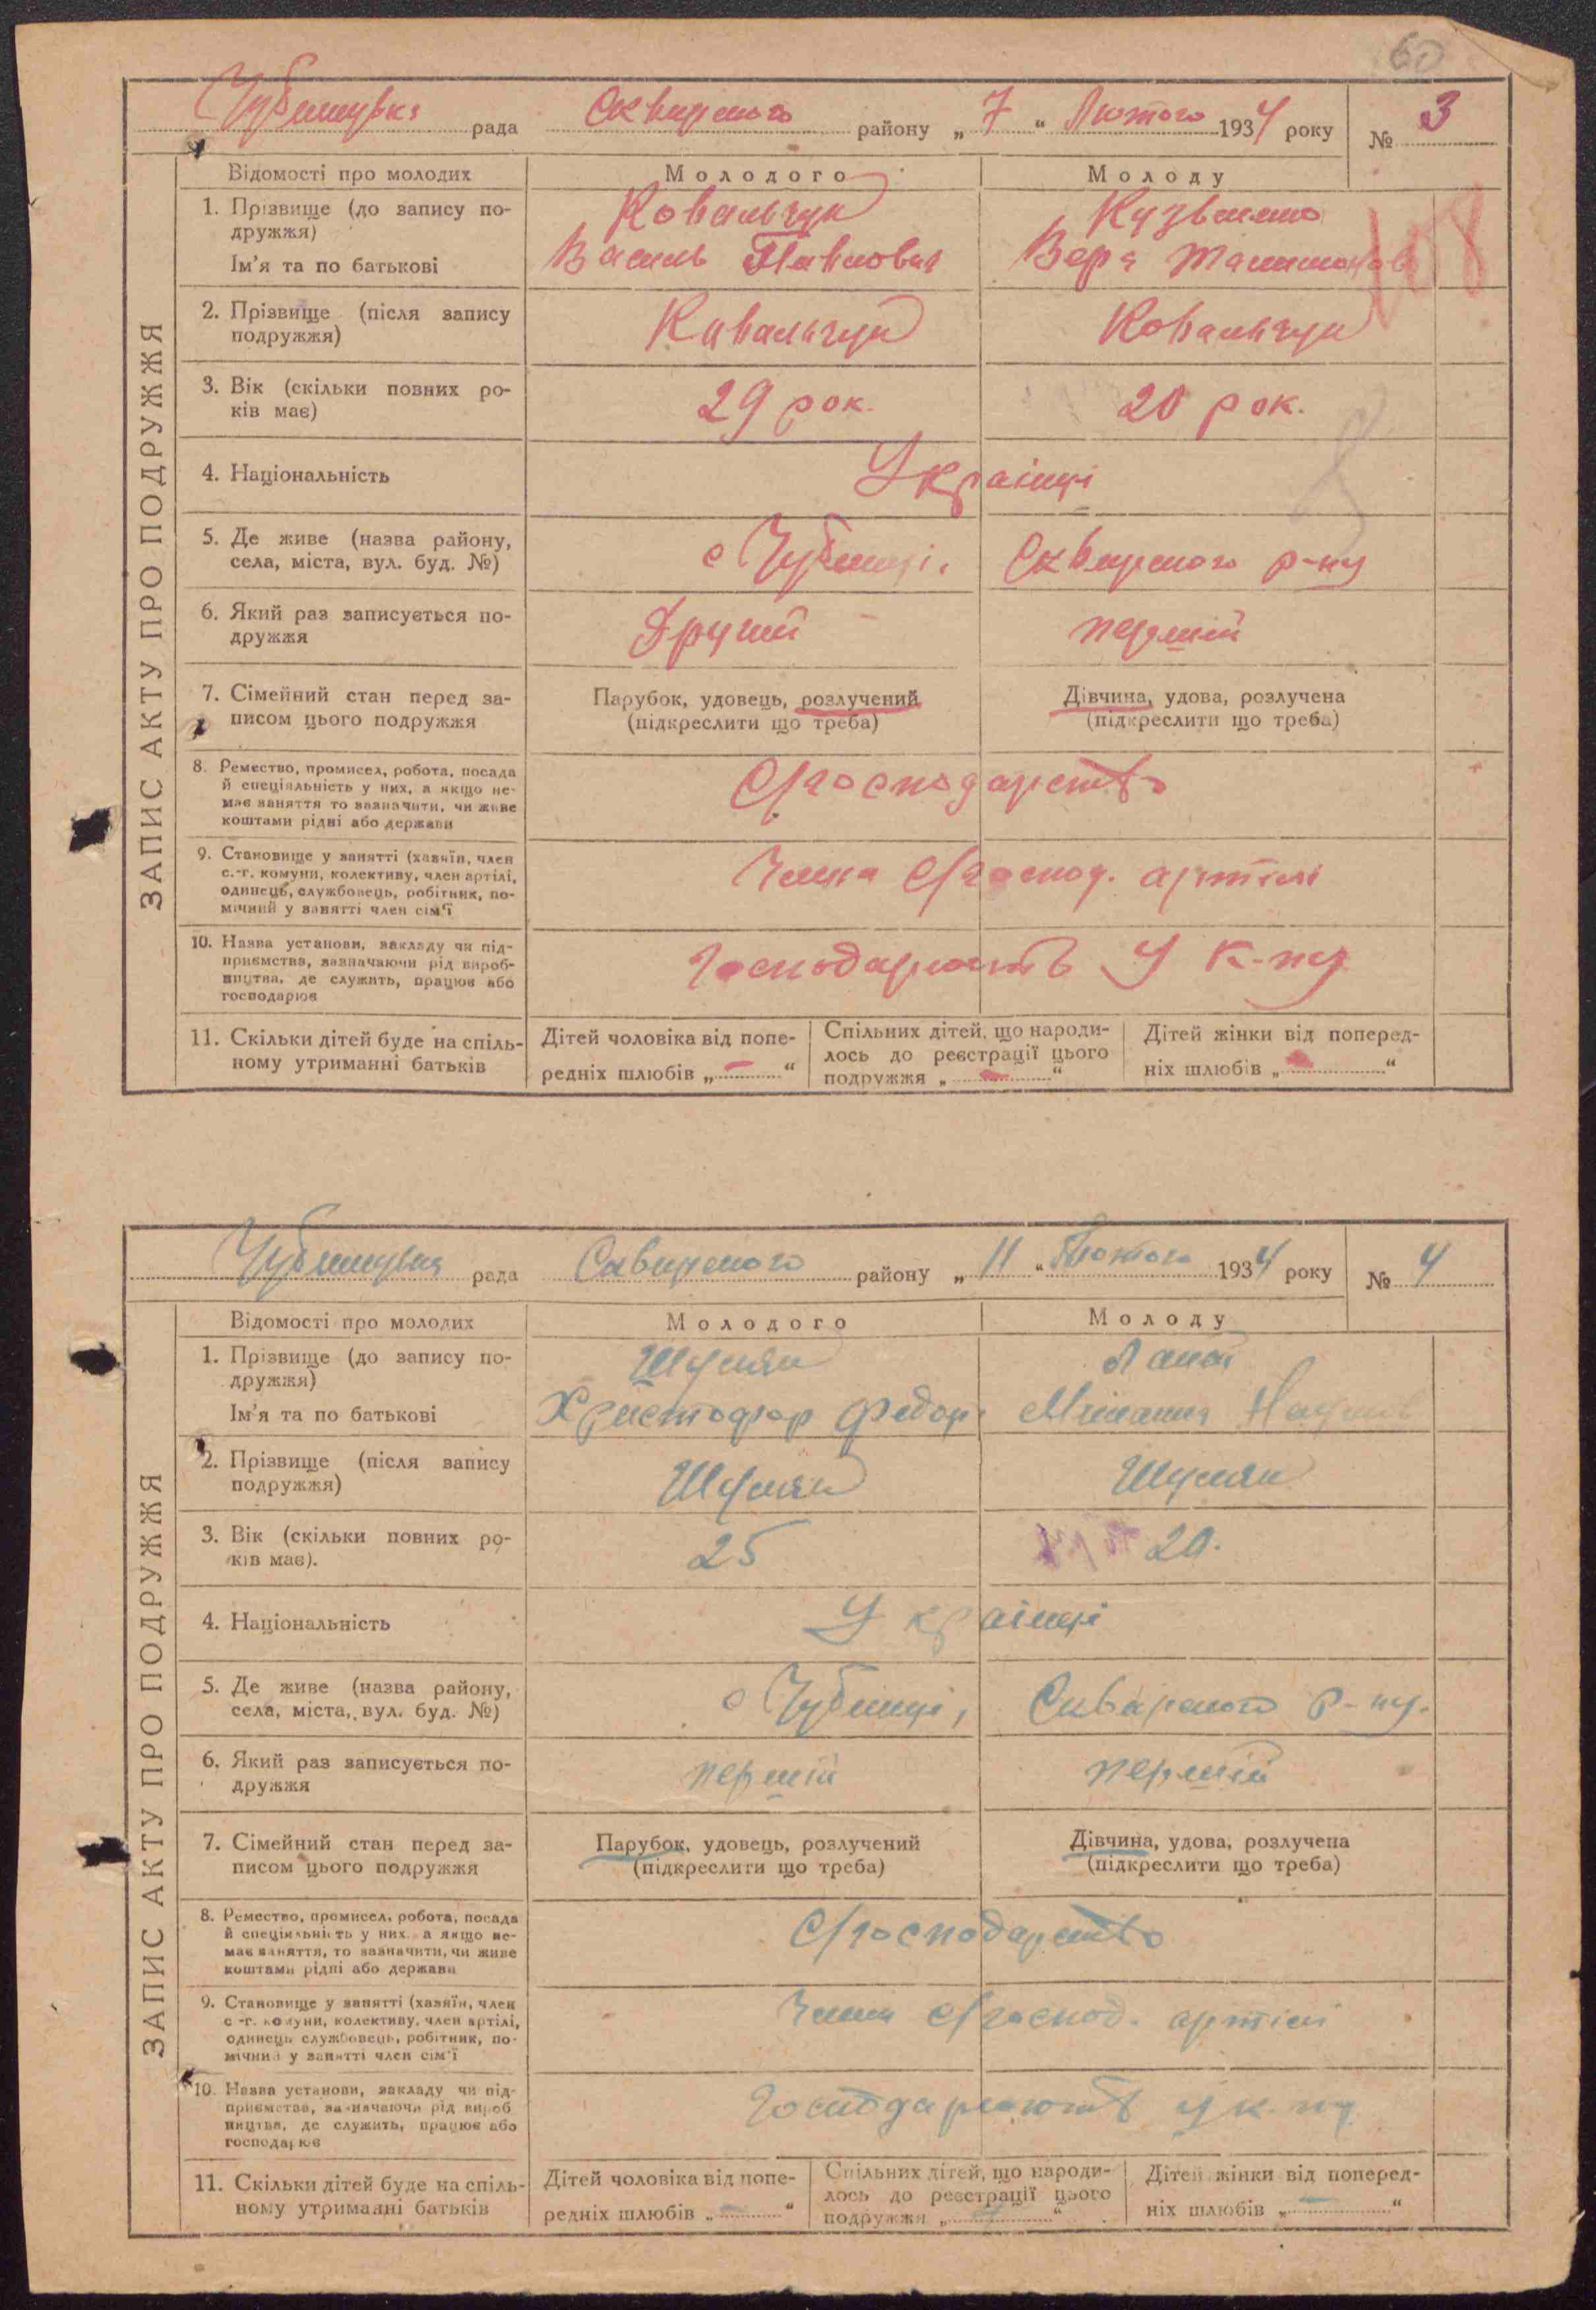 60
Чубинцька рада Сквирського району „ 7 “ Лютого 1934 року № 3
ЗАПИС АКТУ ПРО ПОДРУЖЖЯ
Відомості про молодих Молодого Молоду
1. Прізвище (до запису по- Ковальчук Кузьменко
дружжя)
Ім’я та по батькові Василь Павлович Вера
108
2. Прізвище (після запису Ковальчук Ковальчук
подружжя)
3. Вік (скільки повних ро- 29 рок. 20 рок.
ків має)
4. Національність Українці
5. Де живе (назва району, с Чубинці, Сквирського р-ну
села, міста, вул. буд. №)
6. Який раз записується по- Другий перший
дружжя
7. Сімейний стан перед за- Парубок, удовець, розлучений Дівчина, удова, розлучена
писом цього подружжя (підкреслити що треба) (підкреслити що треба)
8. Ремество, промисел, робота, посада
й спеціяльність у них, а якщо не- С/господарство
має заняття то зазначити, чи живе
коштами рідні або держави
9. Становище у занятті (хазяїн, член
с.-г. комуни, колективу, член артілі, Члени С/господ. артілі
одинець, службовець, робітник, по-
мічний у занятті член сім’ї
10. Назва установи, закладу чи під-
приємства, зазначаючи рід вироб- Господарюють У к-пу
ництва, де служить, працює або
господарює
11. Скільки дітей буде на спіль- Дітей чоловіка від попе- Спільних дітей, що народи- Дітей жінки від поперед-
ному утриманні батьків редніх шлюбів „ — “ лось до реєстрації цього ніх шлюбів „ — “
подружжя „ — “
Чубинцька рада Сквирського району „ 11 “ Лютого 1934 року № 4
ЗАПИС АКТУ ПРО ПОДРУЖЖЯ
Відомості про молодих Молодого Молоду
1. Прізвище (до запису по- Шуляк Лапай
дружжя)
Ім’я та по батькові Христофор Федор. Меланія Наумів
2. Прізвище (після запису Шуляк Шуляк
подружжя)
3. Вік (скільки повних ро- 25 20.
ків має).
4. Національність Українці
5. Де живе (назва району, с Чубинці, Сквирського р-ну.
села, міста, вул. буд. №)
6. Який раз записується по- перший перший
дружжя
7. Сімейний стан перед за- Парубок, удовець, розлучений Дівчина, удова, розлучена
писом цього подружжя (підкреслити що треба) (підкреслити що треба)
8. Ремество, промисел, робота, посада
й спеціяльність у них, а якщо не- С/господарство
має заняття, то зазначити, чи живе
коштами рідні або держави
9. Становище у занятті (хазяїн, член
с.-г. комуни, колективу, член артілі, Члени с/господ. артілі
одинець службовець, робітник, по-
мічний у занятті член сім’ї
10. Назва установи, закладу чи під-
приємства, зазначаючи рід вироб Господарюють у к-пу
ництва, де служить, працює або
господарює
11. Скільки дітей буде на спіль- Дітей чоловіка від попе- Спільних дітей, що народи- Дітей жінки від поперед-
ному утриманні батьків редніх шлюбів „ — “ лось до реєстрації цього ніх шлюбів „ — “
подружжя „ — “